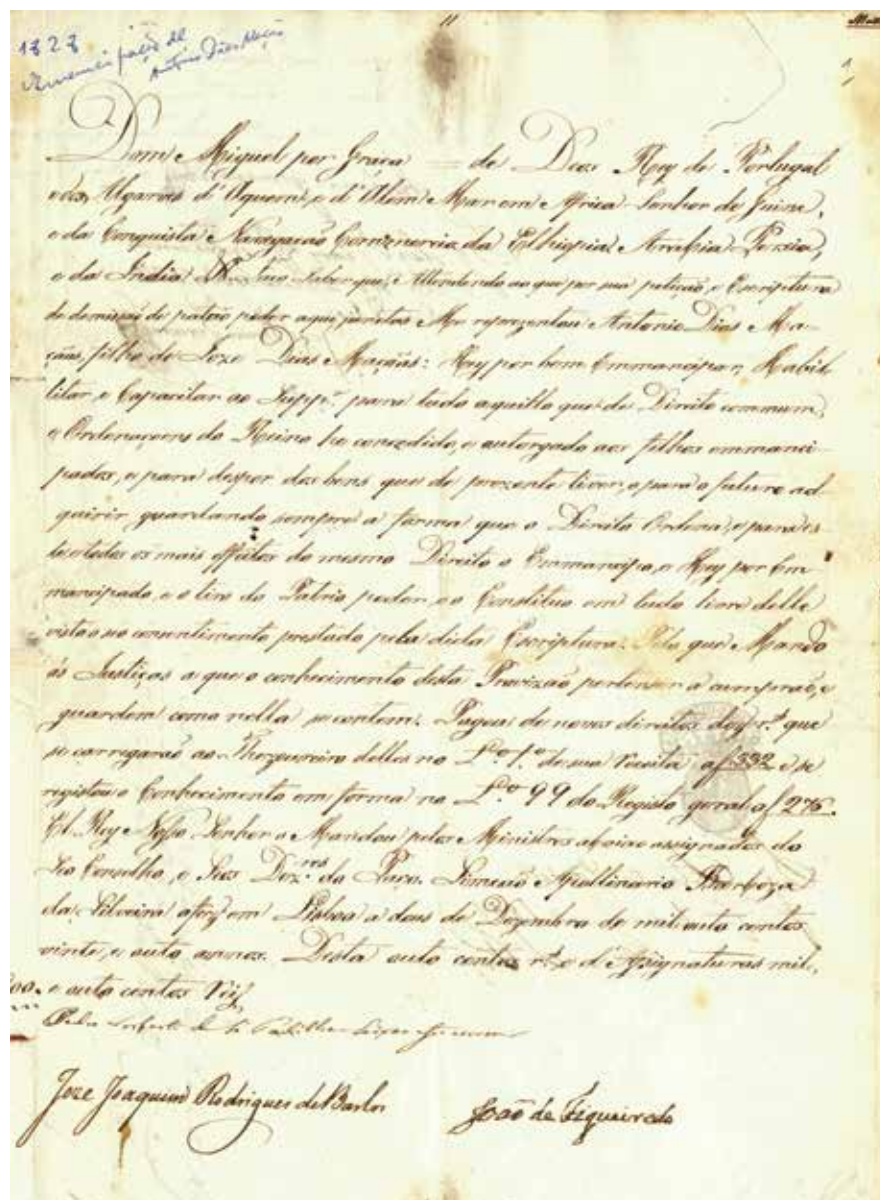 1828
Emancipação de
Antonio Dias Mação
Dom Miguel por Graça de Deos Rey de Portugal
e dos Algarves d'Aquem, e d'Alem Mar em Africa Senhor de Guine,
e da Conquista Navegacaõ Comercio da Ethiopia Arabia Persia,
e da India &.ª Faço saber que, Attendendo ao que por sua petição, e Escriptura
de demissaõ de patrio poder aqui junctas Me reprezentou Antonio Dias Ma-
çaãs, filho de Joze Dias Maçaãs: Hey por bem Emmancipar, Habil
litar, e Capacitar ao Supp.e para tudo aquillo que de Direito commum,
e Ordenaçoens do Reino he concedido, e autorgado aos filhos emmanci-
pados, e para despor dos bens que de prezente tiver, e para o futuro ad-
quirir guardando sempre a forma que o Direito Ordena, e para es-
te e todos os mais effeitos do mesmo Direito o Emmancipo, e Hey por Em
mancipado, e o tiro do Patrio poder, e o Constituo em tudo livre delle
visto o seo consentimento prestado pela dicta Escriptura. Pelo que Mando
ás Justiças a que o conhecimento desta Provizaõ pertencer a cumpraõ, e
guardem como nella se contem. Pagou de novos direitos r.s que
se carregaraõ ao Thezoureiro delles no L.º 1.º de sua Receita a f 332 e se
registou o Conhecimento em forma no L.º 99 do Registo geral a f 276.
El Rey Nosso Senhor o Mandou pelos Ministros abaixo assignados do
Seo Conselho, e Seos Dez.res do Paço. Simeaõ Apollinario Barboza
da Silveira a fez em Lisboa a dous de Dezembro de mil outo centos
vinte, e outo annos. Desta outo centos r.s e d'Assignaturas mil,
e outo centos Reis
Joze Joaquim Rodrigues de Bastos
João de Figueiredo